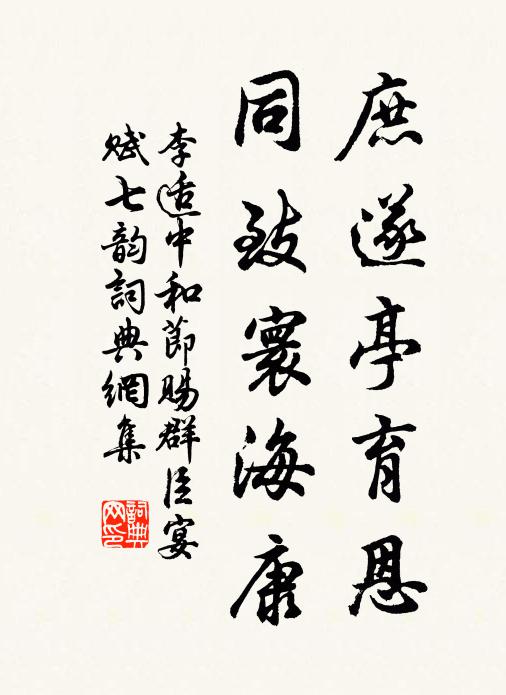 庶遂亭育恩
同致寰海康
李适中和節賜群臣宴
賦七韵詞典網集
詞典网印